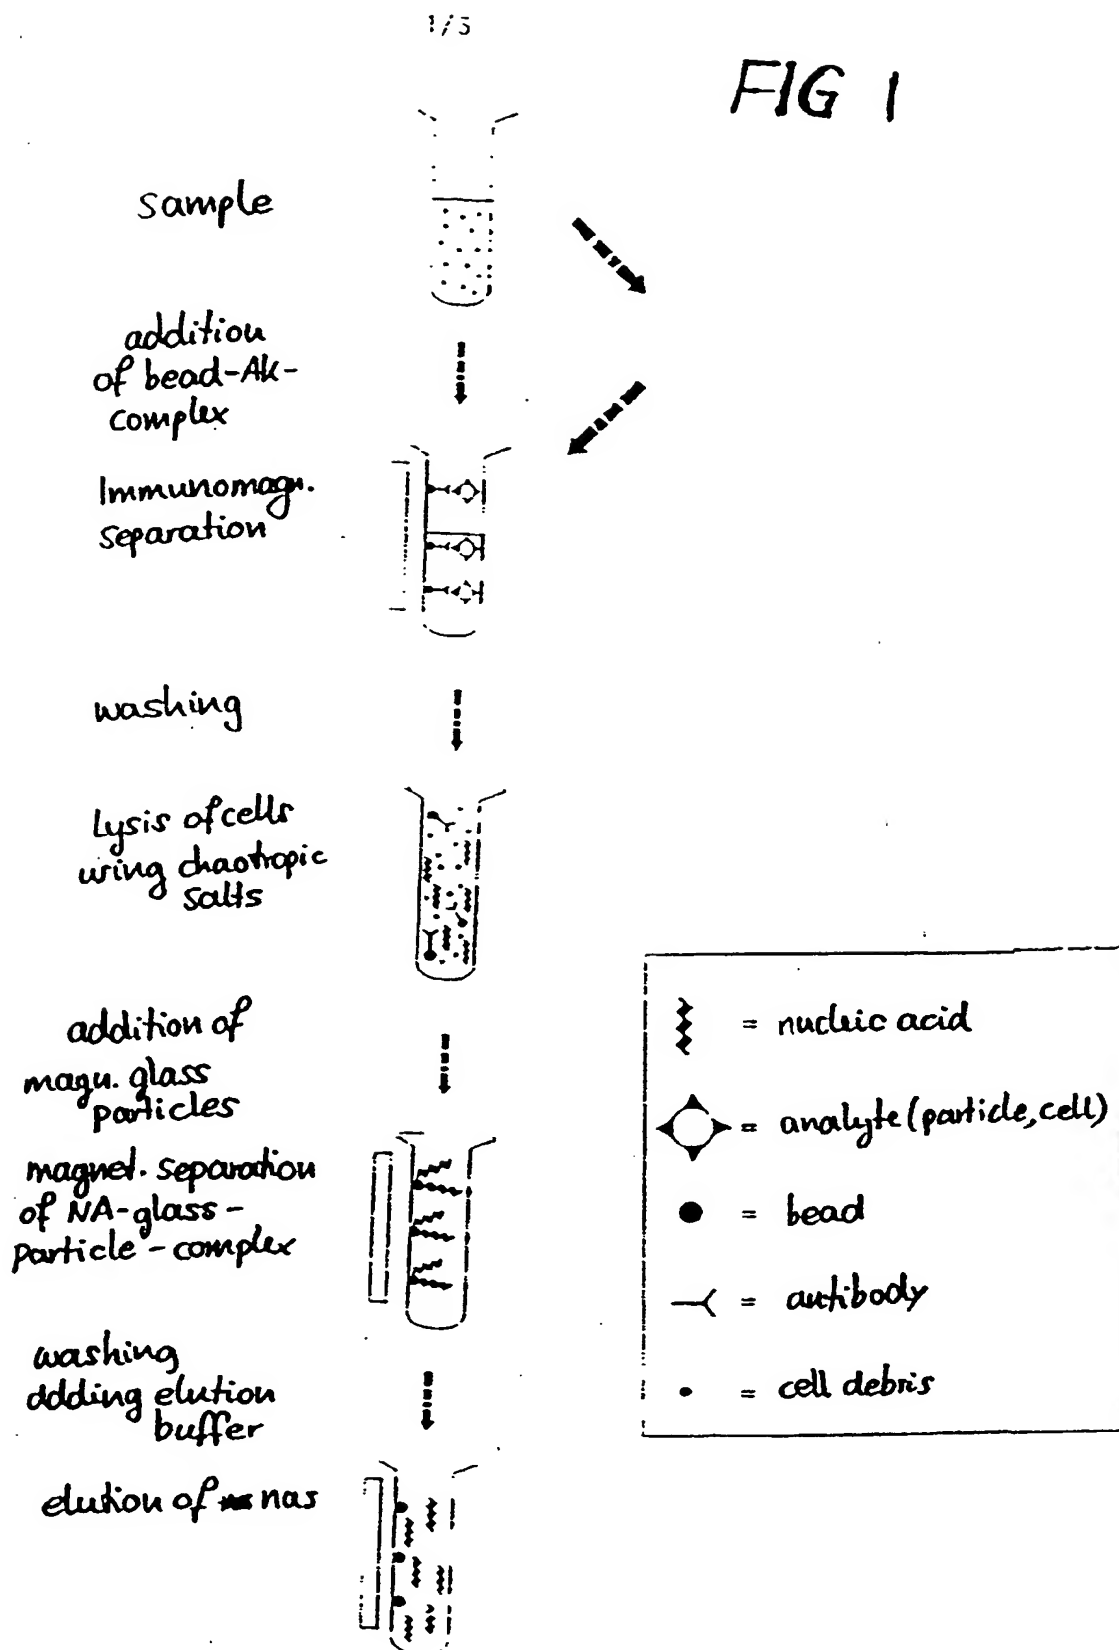 1/3
FIG 1
sample
addition
of bead-Ak-
complex
Immunomagn.
separation
washing
Lysis of cells
using chaotropic
salts
addition of
magn. glass
particles
magnet. separation
of NA-glass-
particle-complex
washing
ddding elution
buffer
elution of nas
= nucleic acid
= analyte (particle, cell)
= bead
= antibody
= cell debris